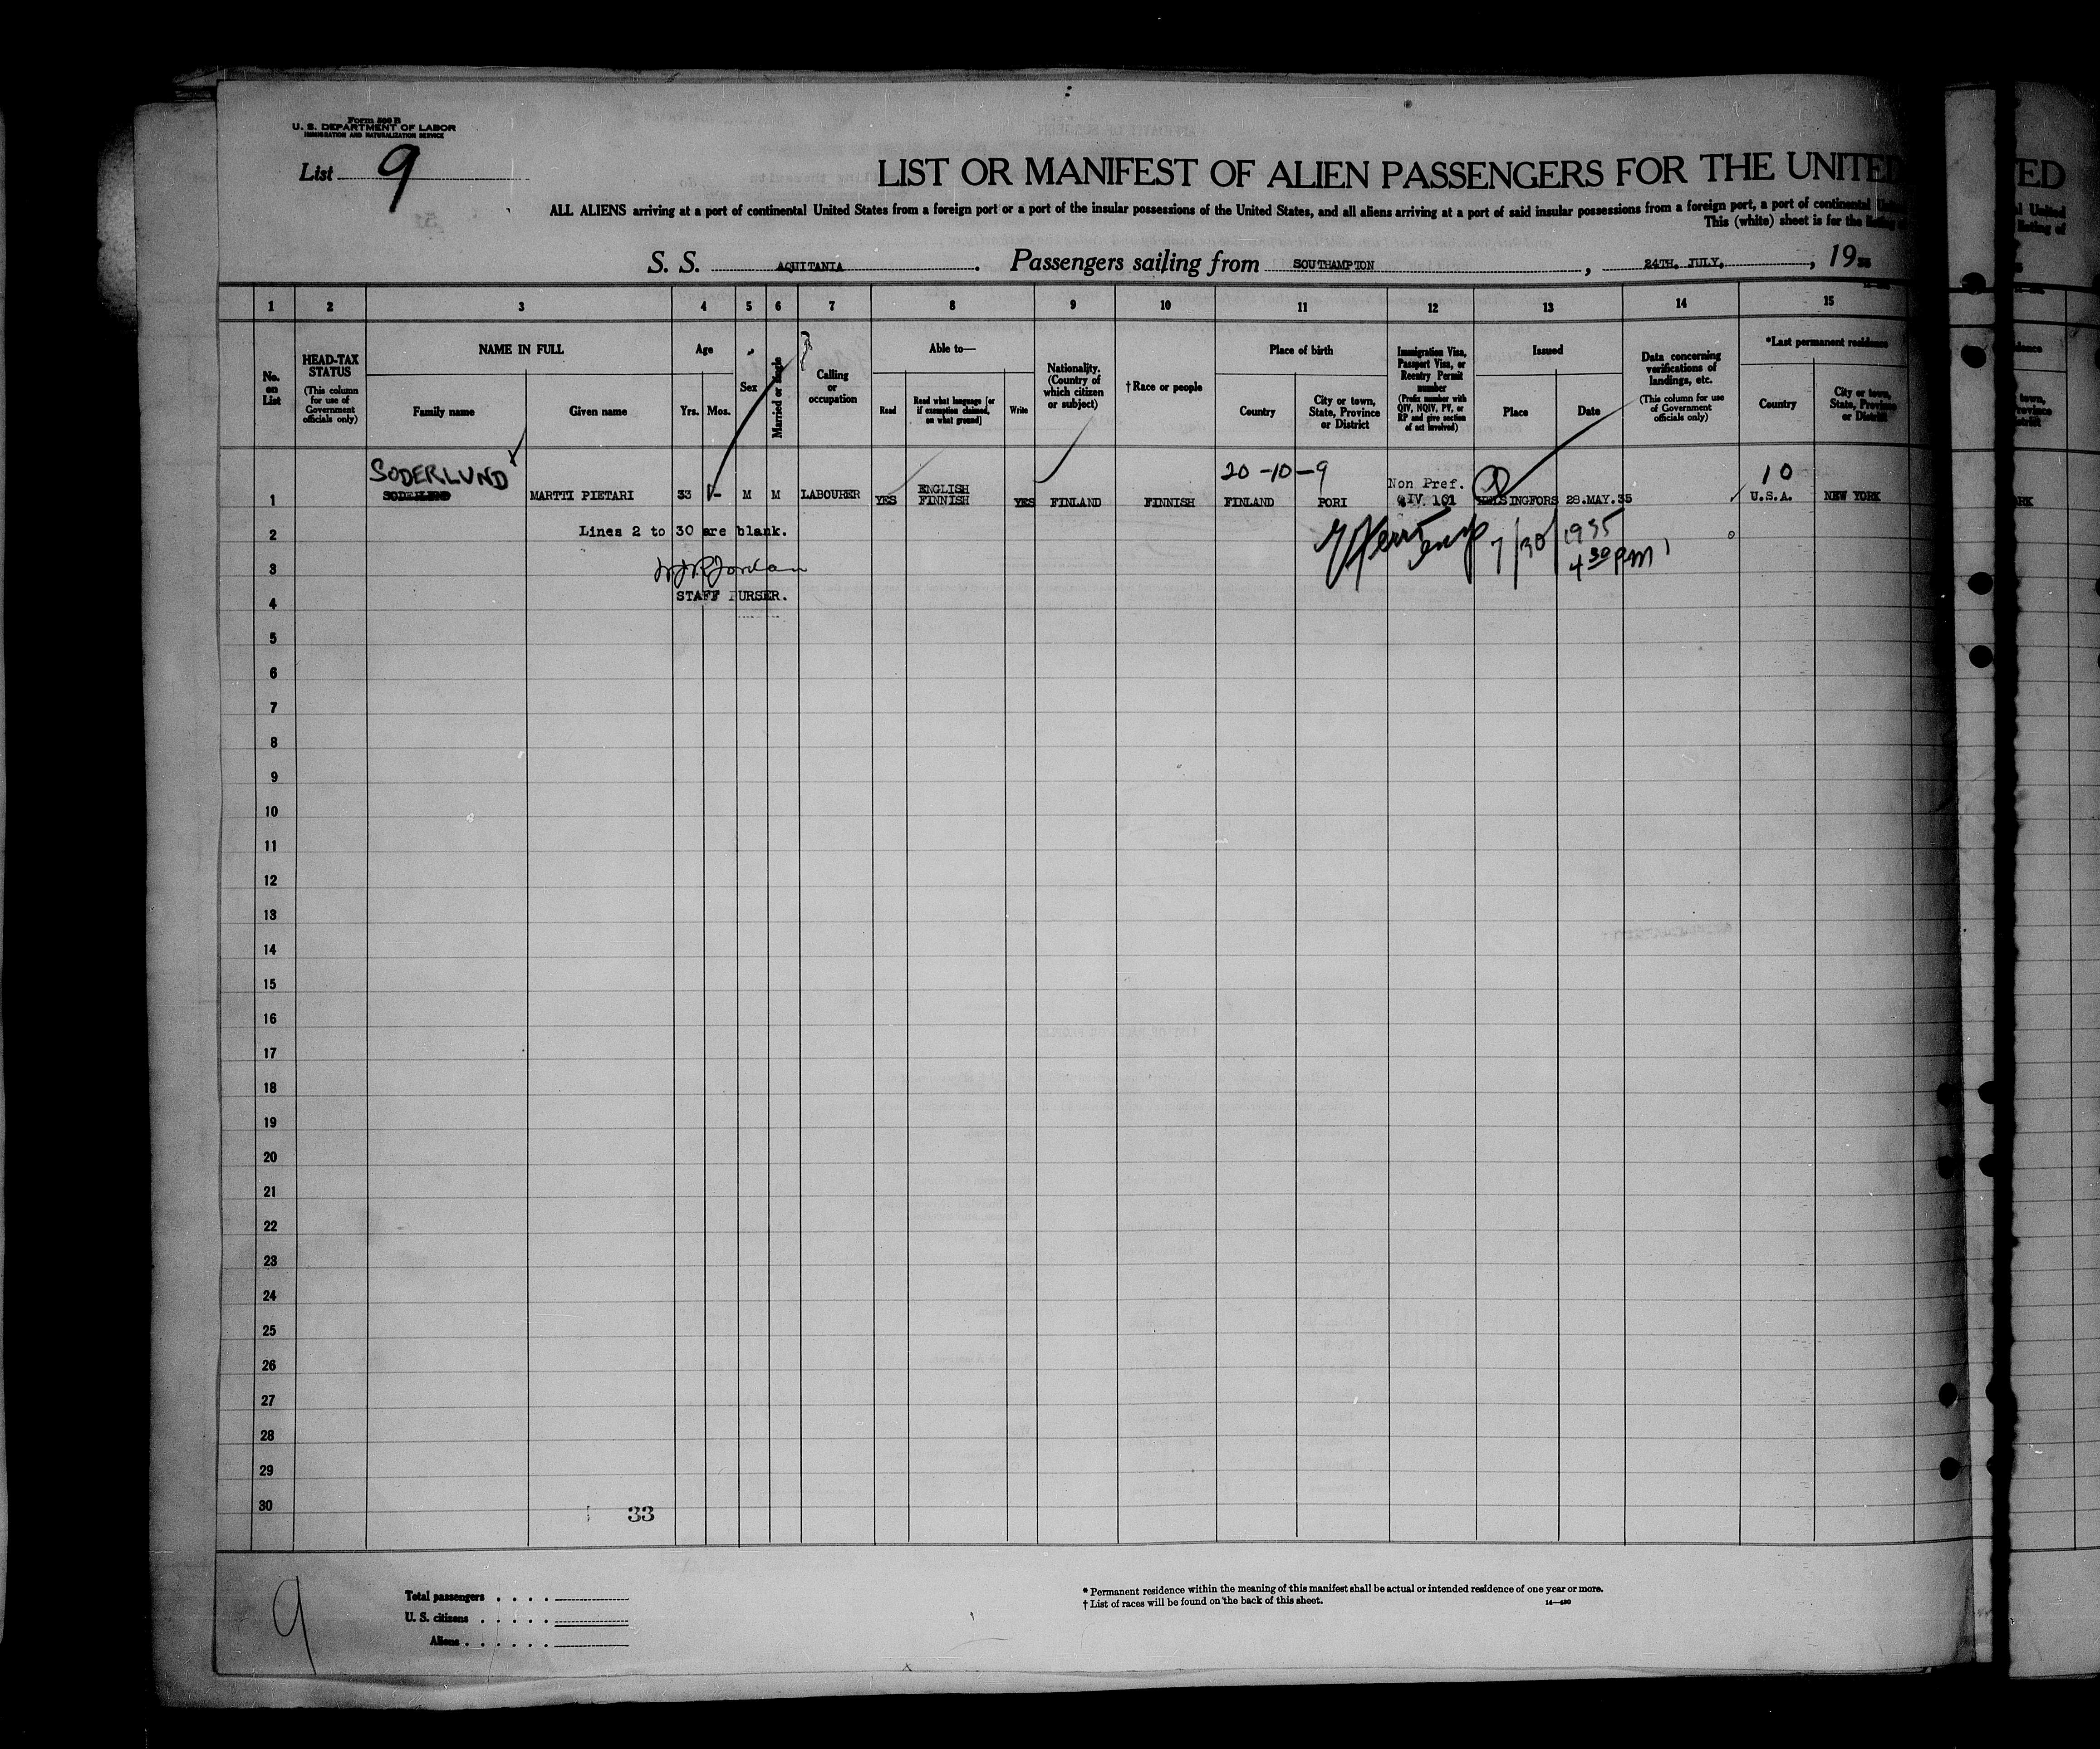 Form 500 B
U. S. DEPARTMENT OF LABOR
IMMIGRATION AND NATURALIZATION SERVICE
List 9
LIST OR MANIFEST OF ALIEN PASSENGERS FOR THE UNITED
ALL ALIENS arriving at a port of continental United States from a foreign port or a port of the insular possessions of the United States, and all aliens arriving at a port of said insular possessions from a foreign port, a port of continental
This (white) sheet is for the listing
S. S. AQUITANIA. Passengers sailing from SOUTHAMPTON, 24TH. JULY, , 19
1 2 3 4 5 6 7 8 9 10 11 12 13 14 15
No. on List
HEAD-TAX STATUS (This column for use of Government officials only)
NAME IN FULL
Family name
Given name
Age
Yrs. Mos.
Sex
Married or single
Calling or occupation
Able to—
Read
Read what language [or if exemption claimed, on what ground]
Write
Nationality. (Country of which citizen or subject)
† Race or people
Place of birth
Country
City or town, State, Province or District
Immigration Visa, Passport Visa, or Reentry Permit number (Prefix number with QIV, NQIV, PV, or RP and give section of act involved)
Issued
Place
Date
Data concerning verifications of landings, etc. (This column for use of Government officials only)
*Last permanent residence
Country
City or town, State, Province or District
SODERLUND 20-10-9 10
1 MARTTI PIETARI 33 - M M LABOURER YES ENGLISH FINNISH YES FINLAND FINNISH FINLAND PORI Non Pref. QIV. 101 HELSINGFORS 28.MAY.35 U.S.A. NEW YORK
2 Lines 2 to 30 are blank. 7/30/1935
3 Jordan 4 30 PM
4 STAFF PURSER.
5
6
7
8
9
10
11
12
13
14
15
16
17
18
19
20
21
22
23
24
25
26
27
28
29
30
33
9
Total passengers . . . .
U. S. citizens . . . . .
Aliens . . . . . .
* Permanent residence within the meaning of this manifest shall be actual or intended residence of one year or more.
† List of races will be found on the back of this sheet.
14—430